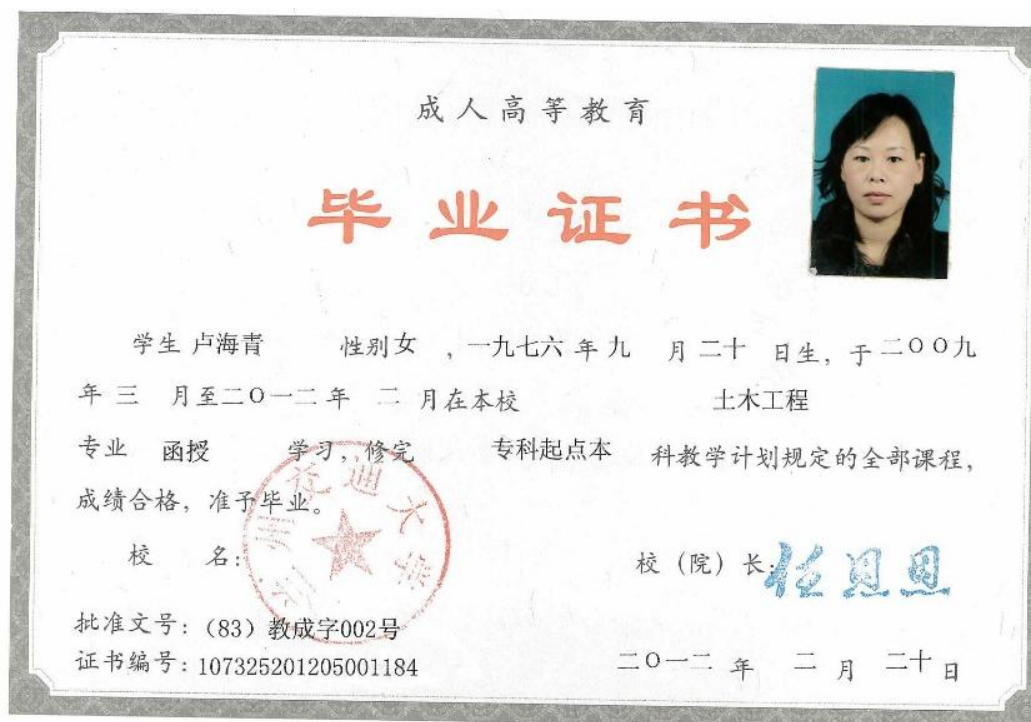 成人高等教育
毕业证书
学生 卢海青 性别 女 , 一九七六 年 九 月 二十 日生, 于 二00九
年 三 月至 二0一二 年 二 月在本校 土木工程
专业 函授 学习, 修完 专科起点本 科教学计划规定的全部课程,
成绩合格, 准予毕业。
兰州交通大学
校 名: 校 (院) 长: 任恩恩
批准文号: (83) 教成字002号
证书编号: 107325201205001184 二0一二 年 二 月 二十 日